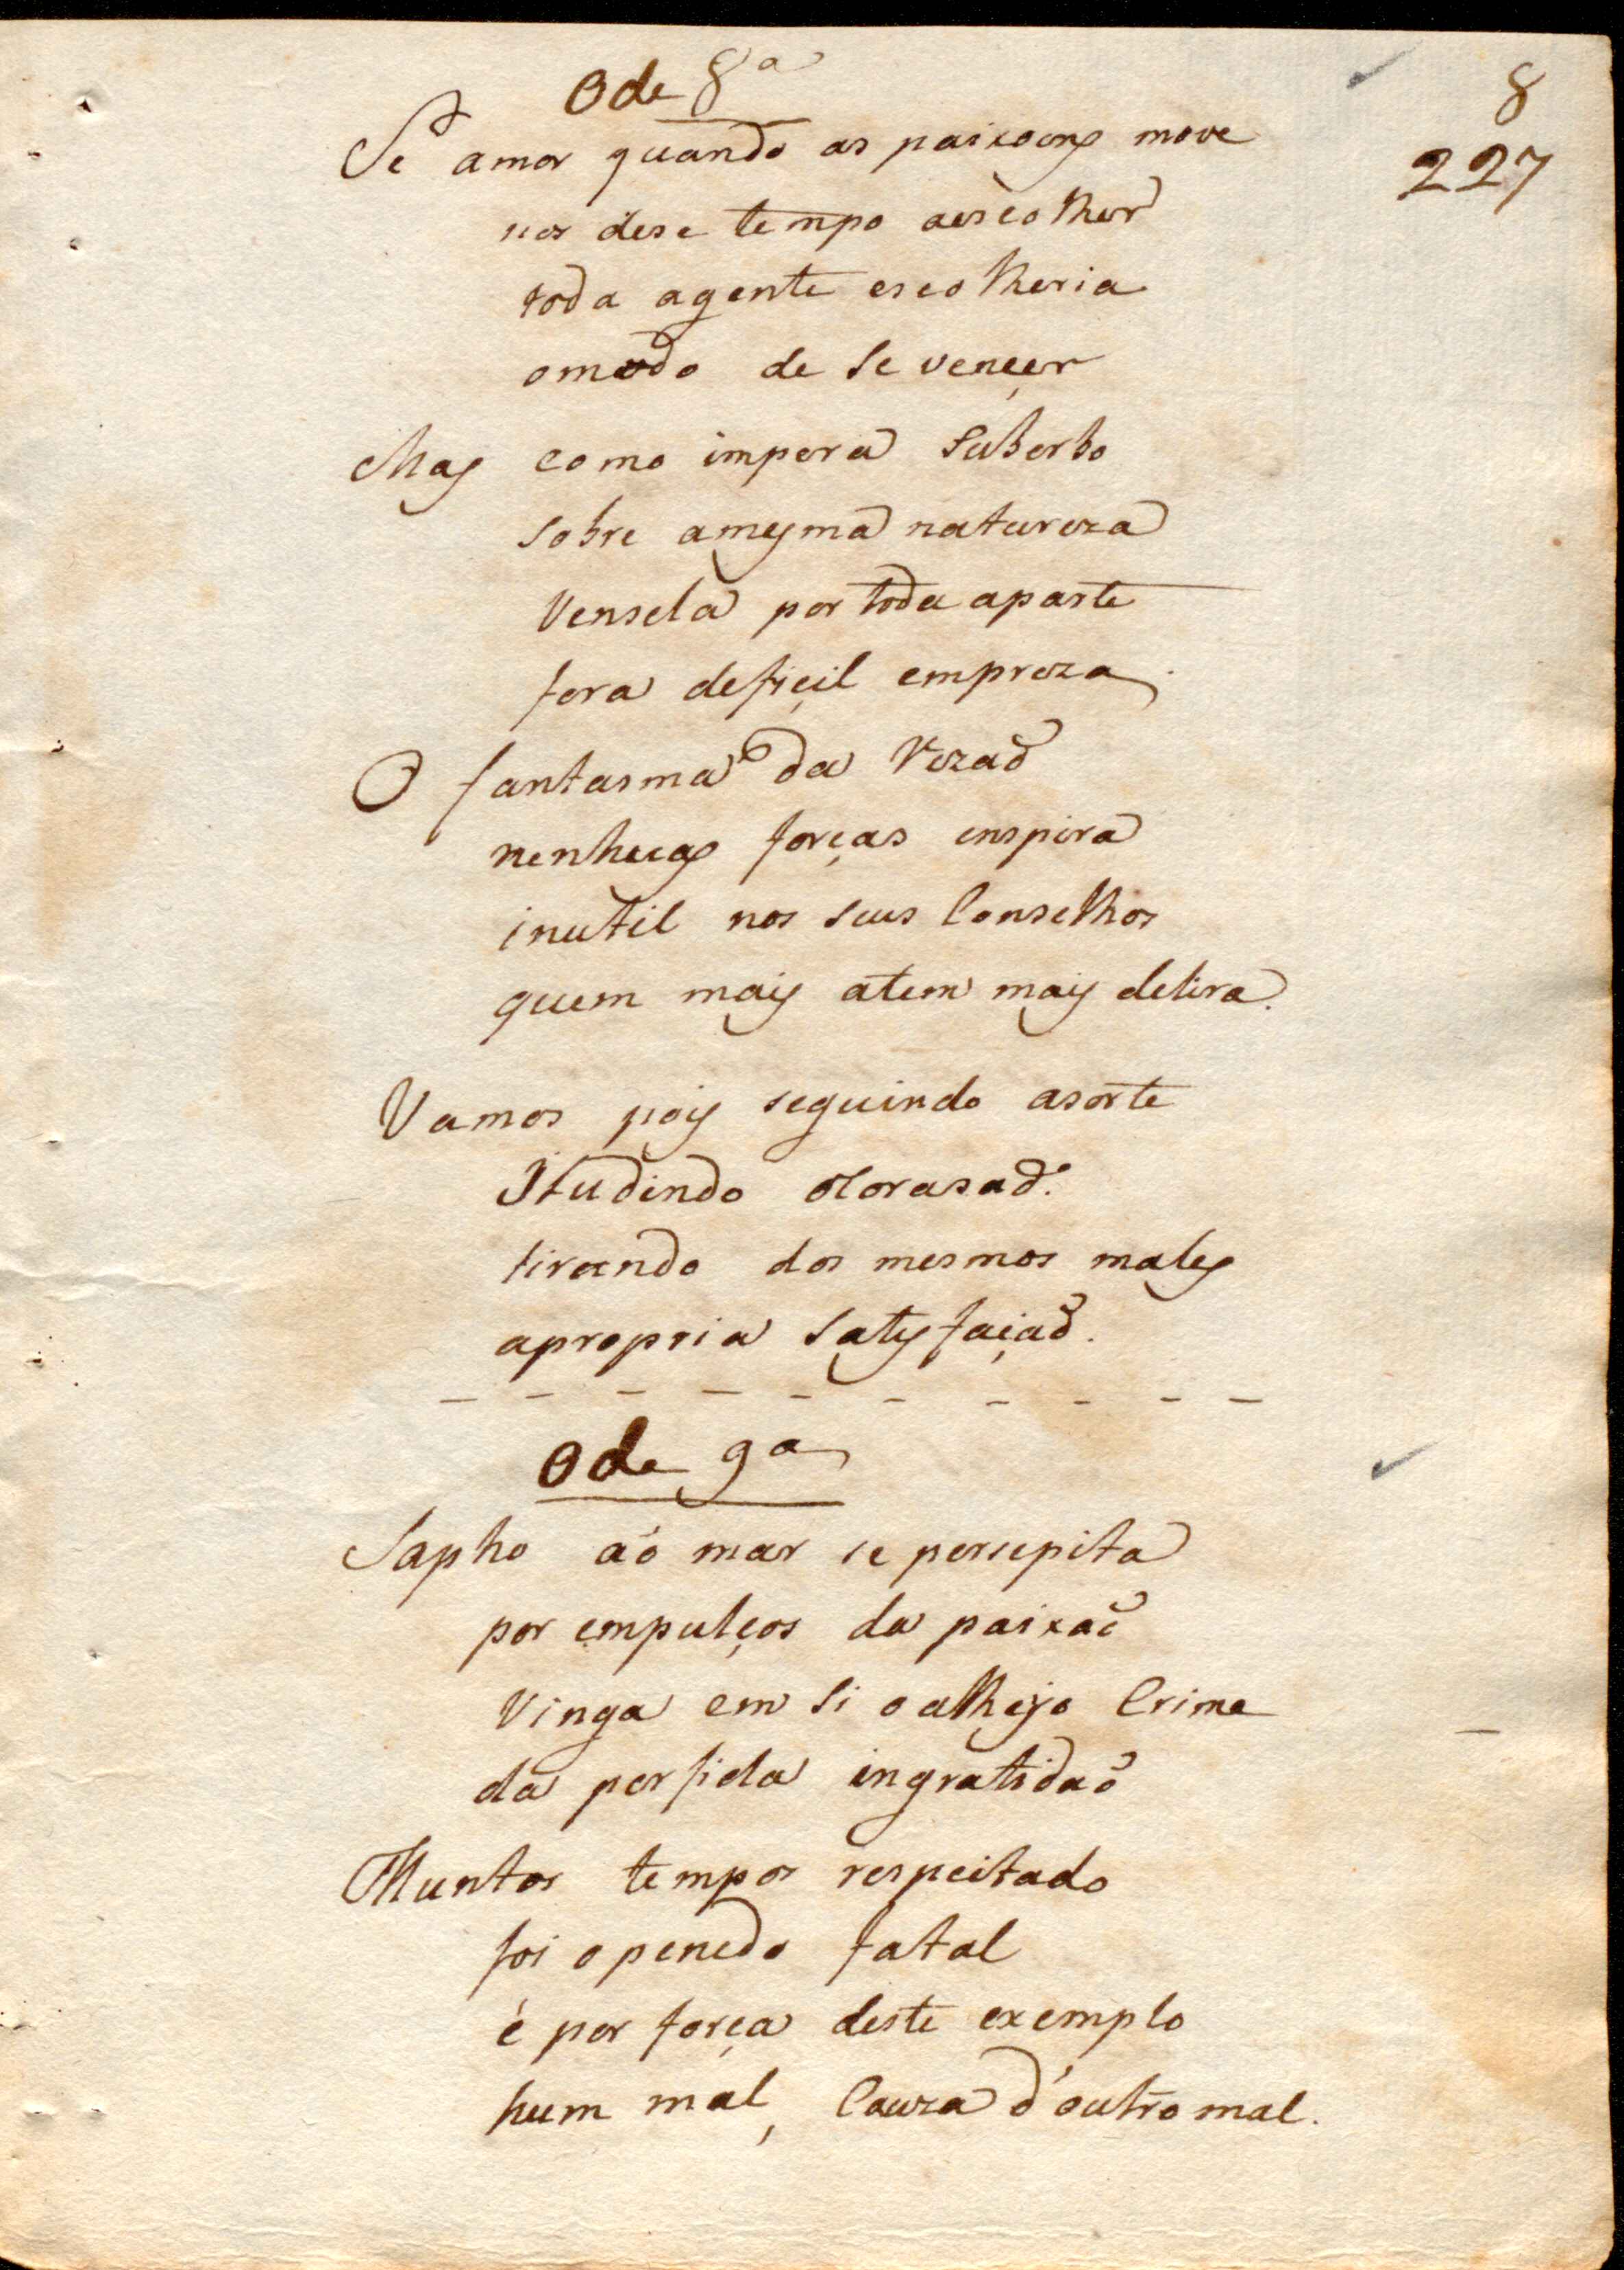 Ode 8ª
8
227
Se amor quando as paixoens move
nos dese tempo aescolher
toda agente escolheria
omodo de se vençer
Mas como impera suberbo
sobre amesma natureza
Vensela por toda aparte
fora defiçil empreza.
O fantasma da Rezaõ
nenhuas forças enspira
inutil nos seus Conselhos
quem mais atem mais delira.
Vamos pois seguindo asorte
Iludindo oCorasaõ.
tirando dos mesmos males
apropria satisfaçaõ.
Ode 9ª
Sapho aó mar se persepita
por empulços da paixaõ
Vinga em si o alheyo Crime
da perfida ingratidaõ
Muntos tempos respeitado
foi openedo fatal
é por força deste exemplo
hum mal, Cauza d'outro mal.